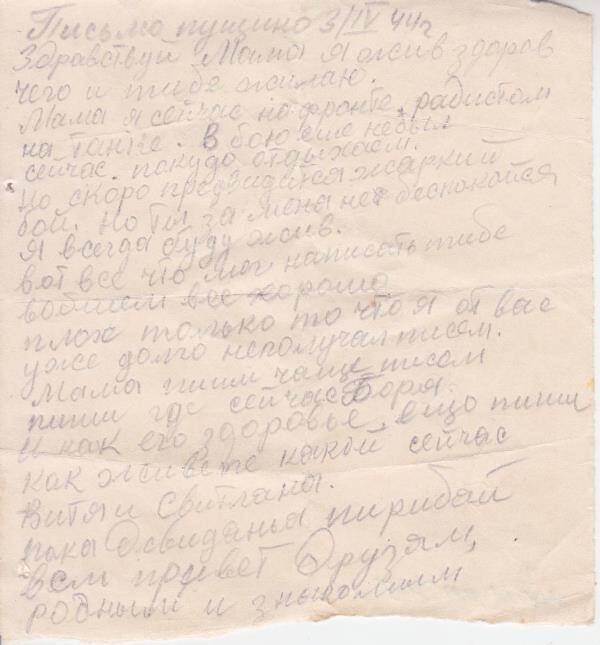 Письмо пущино 3/IV 44г
Здравствуй Мама я жив здоров
чего и тибе жилаю.
Мама я сейчас на фронте, радистом
на танке. В бою еще небыл
сейчас покудо отдыхаем.
но скоро предвидится жаркий
бой. Но ты за меня не беспокойся
я всегда буду жив.
вот все что мог написать тибе
вобщем все хорошо
плохо только то что я от вас
уже долго неполучал писем.
Мама пиши чаще писем
пиши где сейчас Боря.
и как его здоровье, ищо пиши
как живете какой сейчас
Витя и Свитлана.
пока Досвиданья пиридай
всем привет Друзям,
родным и знакомым